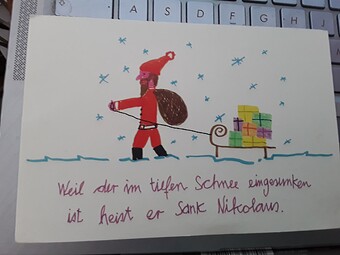 A S D F G H
Weil der im tiefen Schnee eingesunken
ist heist er Sank Nikolaus.